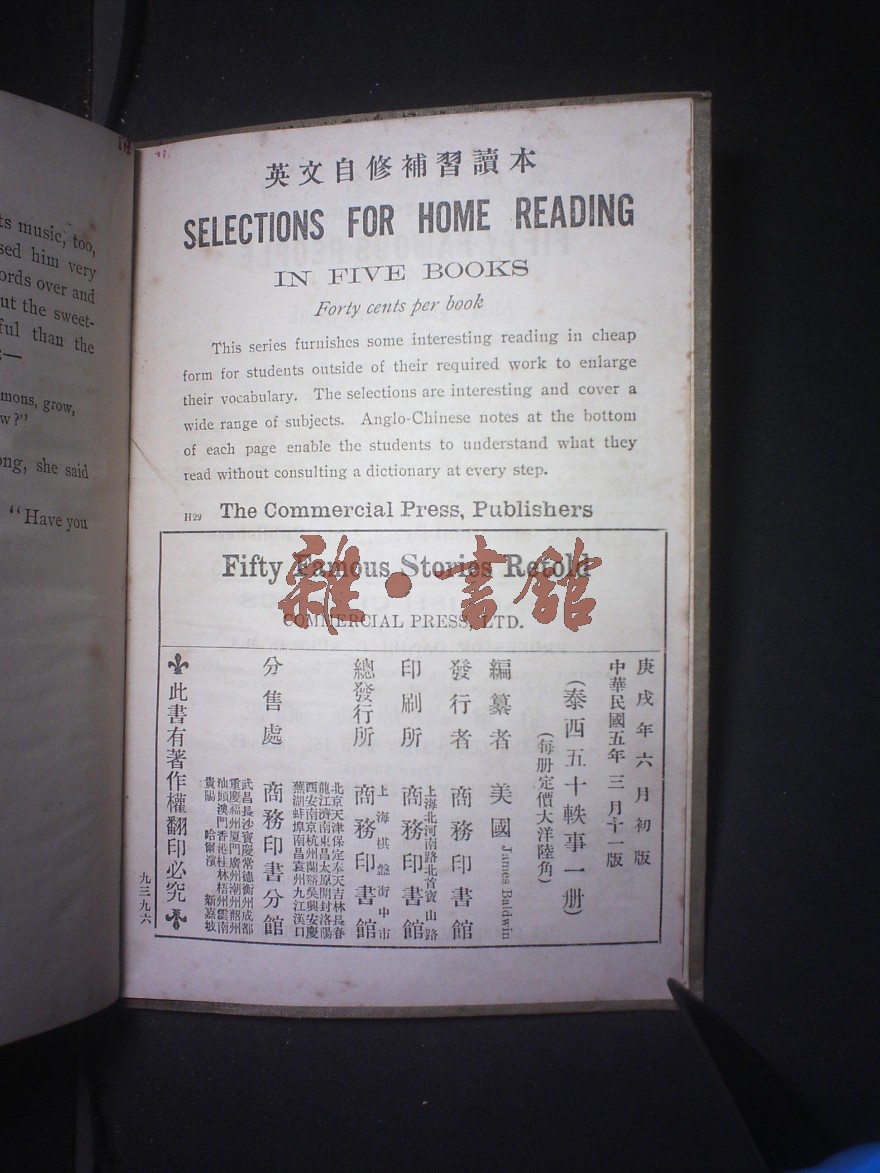 ts music, too,
sed him very
ords over and
ut the sweet-
ful than the
:—
mons, grow,
w?"
ong, she said
"Have you
英文自修補習讀本
SELECTIONS FOR HOME READING
IN FIVE BOOKS
Forty cents per book
This series furnishes some interesting reading in cheap
form for students outside of their required work to enlarge
their vocabulary. The selections are interesting and cover a
wide range of subjects. Anglo-Chinese notes at the bottom
of each page enable the students to understand what they
read without consulting a dictionary at every step.
H29 The Commercial Press, Publishers
Fifty Famous Stories Retold
COMMERCIAL PRESS, LTD.
雜·書館
庚戌年六月初版
中華民國五年三月十一版
(泰西五十軼事一册)
(每册定價大洋陸角)
編纂者 美國 James Baldwin
發行者 商務印書館
印刷所 上海北河南路北首寶山路 商務印書館
總發行所 上海棋盤街中市 商務印書館
分售處 商務印書分館
北京天津保定奉天吉林長春
龍江濟南東昌太原開封洛陽
西安南京杭州蘭谿吳興安慶
蕪湖蚌埠南昌袁州九江漢口
武昌長沙寶慶常德衡州成都
重慶福州厦門廣州潮州韶州
汕頭澳門香港桂林梧州雲南
貴陽 哈爾濱 新嘉坡
此書有著作權翻印必究
九三九六